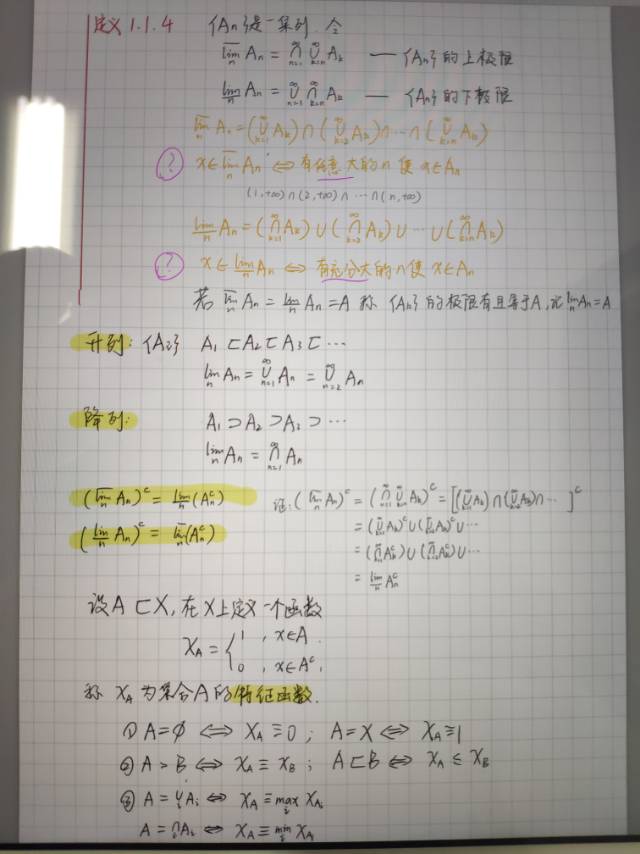 定义1.1.4 {Aₙ}是一集列,令
lim̅ₙ Aₙ = ⋂ₙ₌₁^∞ ⋃ₖ₌ₙ^∞ Aₖ —— {Aₙ}的上极限
lim̲ₙ Aₙ = ⋃ₙ₌₁^∞ ⋂ₖ₌ₙ^∞ Aₖ —— {Aₙ}的下极限
lim̅ₙ Aₙ = (⋃ₖ₌₁^∞ Aₖ) ∩ (⋃ₖ₌₂^∞ Aₖ) ∩ ⋯ ∩ (⋃ₖ₌ₙ^∞ Aₖ)
? x∈lim̅ₙ Aₙ ⇔ 有任意大的n使x∈Aₙ
(1,+∞)∩(2,+∞)∩ ⋯ ∩(n,+∞)
lim̲ₙ Aₙ = (⋂ₖ₌₁^∞ Aₖ) ∪ (⋂ₖ₌₂^∞ Aₖ) ∪ ⋯ ∪ (⋂ₖ₌ₙ^∞ Aₖ)
? x∈lim̲ₙ Aₙ ⇔ 有充分大的n使x∈Aₙ
若 lim̅ₙ Aₙ = lim̲ₙ Aₙ = A 称{Aₙ}的极限有且等于A,记limₙ Aₙ = A
升列: {Aᵢ} A₁⊏A₂⊏A₃⊏⋯
limₙ Aₙ = ⋃ₙ₌₁^∞ Aₙ = ⋃ₙ₌₂^∞ Aₙ
降列: A₁⊃A₂⊃A₃⊃⋯
limₙ Aₙ = ⋂ₙ₌₁^∞ Aₙ
(lim̅ₙ Aₙ)ᶜ = lim̲ₙ(Aₙᶜ)
(lim̲ₙ Aₙ)ᶜ = lim̅ₙ(Aₙᶜ)
证: (lim̅ₙ Aₙ)ᶜ = (⋂ₙ₌₁^∞ ⋃ₖ₌ₙ^∞ Aₖ)ᶜ = [(⋃ₖ₌₁^∞ Aₖ)∩(⋃ₖ₌₂^∞ Aₖ)∩⋯]ᶜ
= (⋃ₖ₌₁^∞ Aₖ)ᶜ∪(⋃ₖ₌₂^∞ Aₖ)ᶜ∪⋯
= (⋂ₖ₌₁^∞ Aₖᶜ)∪(⋂ₖ₌₂^∞ Aₖᶜ)∪⋯
= lim̲ₙ Aₙᶜ
设A⊏X,在X上定义一个函数
χ_A = { 1 , x∈A
0 , x∈Aᶜ,
称χ_A为集合A的特征函数.
① A=∅ ⇔ χ_A≡0; A=X ⇔ χ_A≡1
② A=B ⇔ χ_A≡χ_B; A⊏B ⇔ χ_A≤χ_B
③ A=⋃ᵢAᵢ ⇔ χ_A≡maxᵢ χ_Aᵢ
A=⋂ᵢAᵢ ⇔ χ_A≡minᵢ χ_Aᵢ